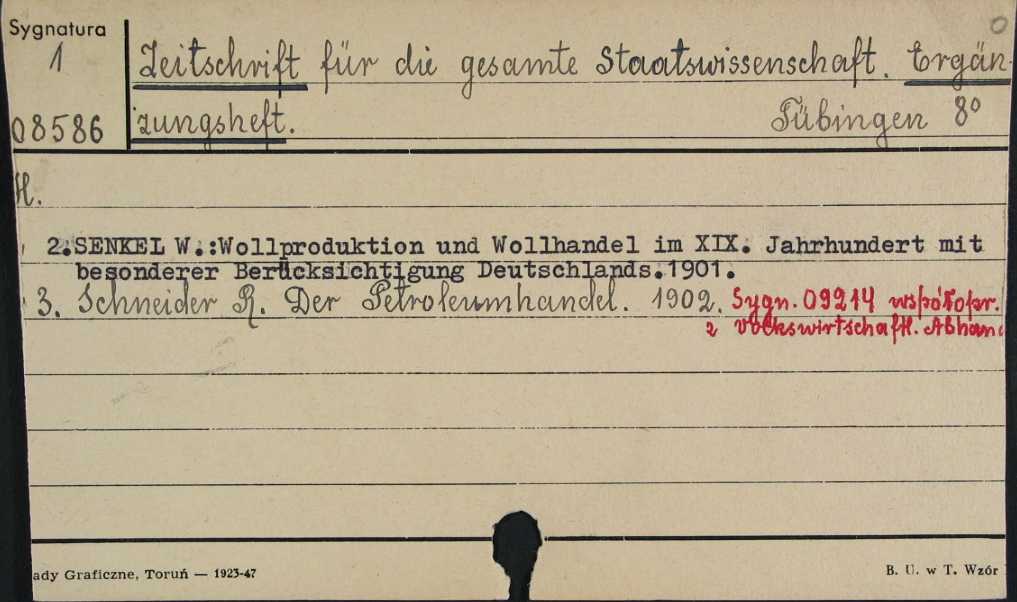 Sygnatura
1
08586
Zeitschrift für die gesamte Staatswissenschaft. Ergän-
zungsheft.
Tübingen 8°
H.
2.SENKEL W.:Wollproduktion und Wollhandel im XIX. Jahrhundert mit
besonderer Berücksichtigung Deutschlands.1901.
3. Schneider R. Der Petroleumhandel. 1902. Sygn. 09214 współopr.
z Volkswirtschaftl. Abhan
ady Graficzne, Toruń — 1923-47
B. U. w T. Wzór